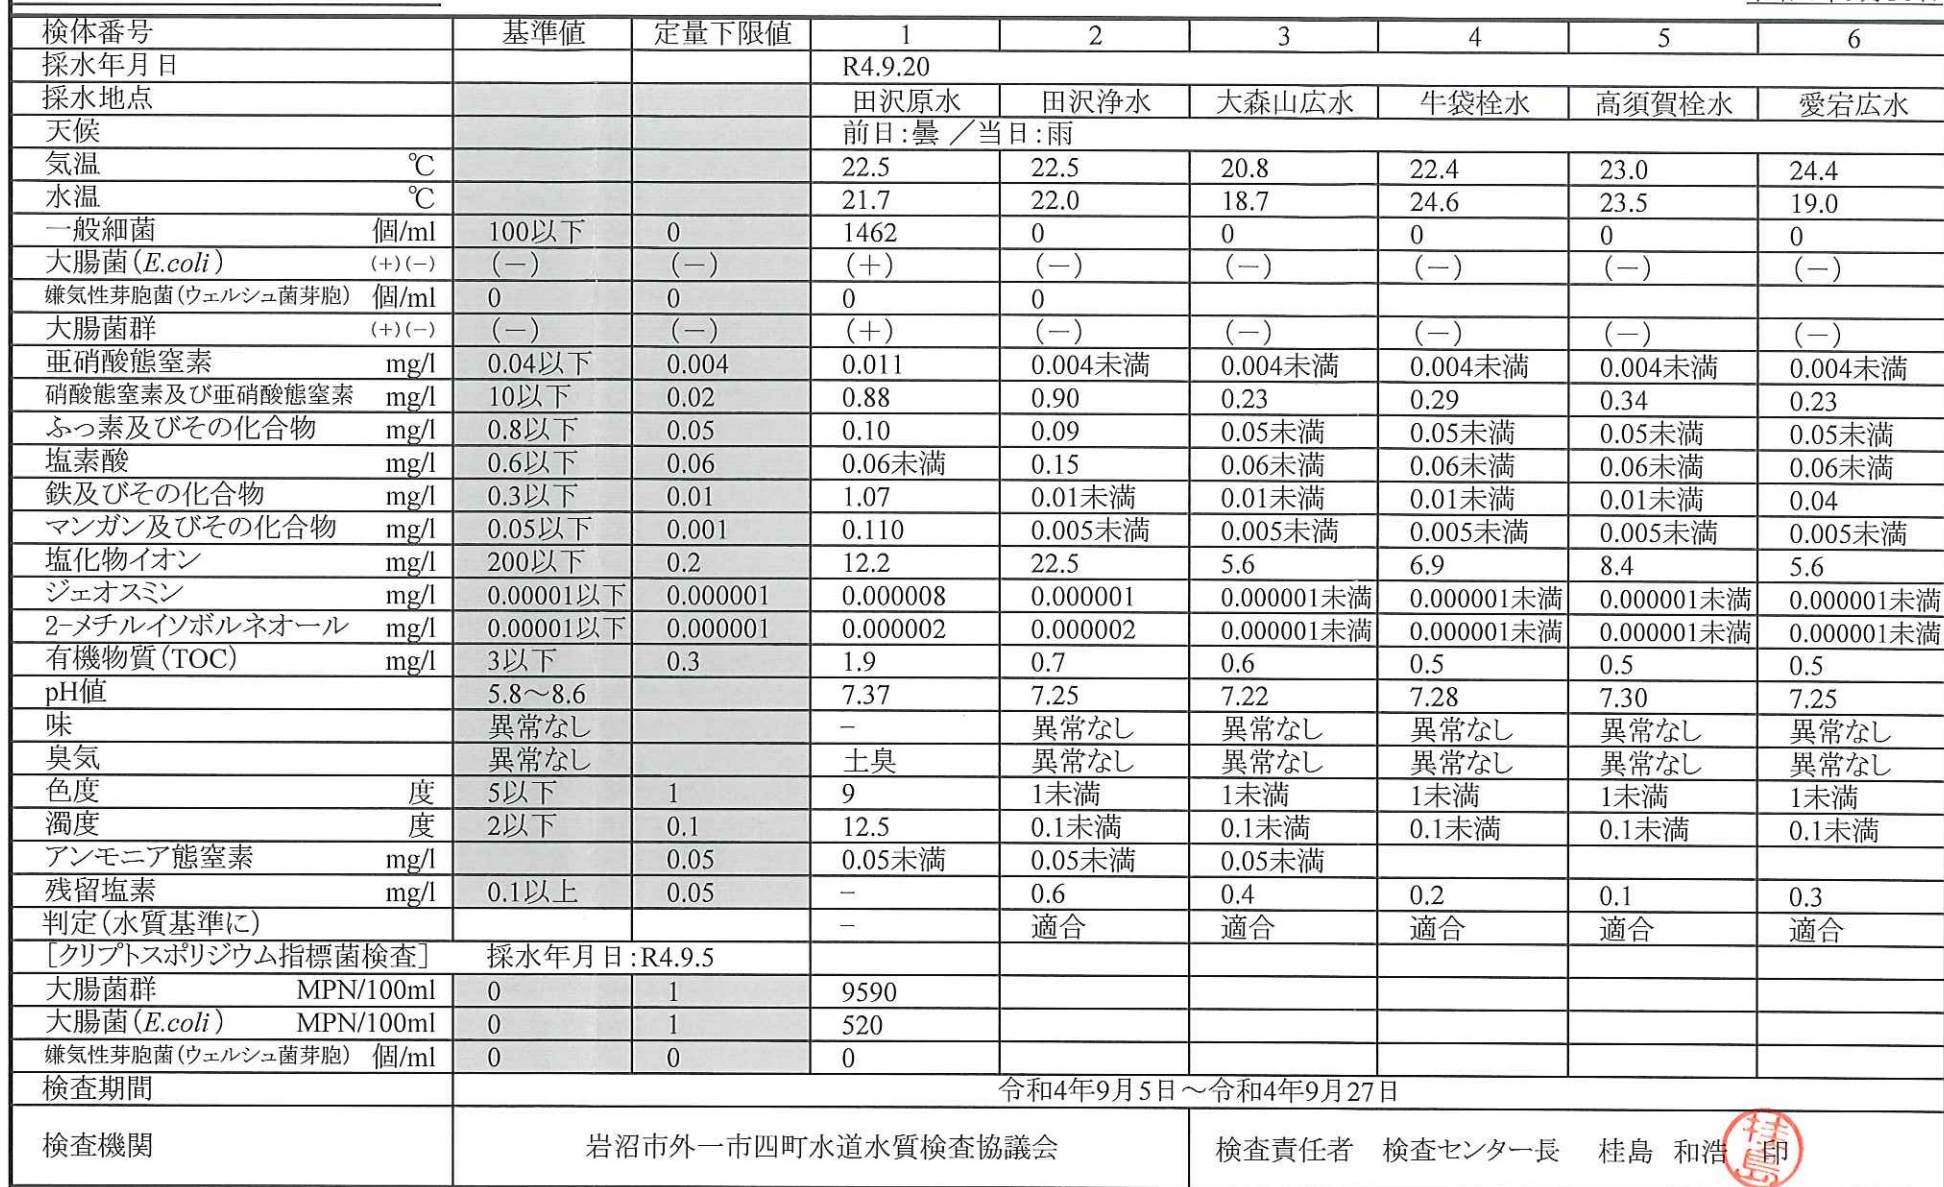 検体番号 基準値 定量下限値 1 2 3 4 5 6
採水年月日 R4.9.20
採水地点 田沢原水 田沢浄水 大森山広水 牛袋栓水 高須賀栓水 愛宕広水
天候 前日:曇 ／当日:雨
気温 ℃ 22.5 22.5 20.8 22.4 23.0 24.4
水温 ℃ 21.7 22.0 18.7 24.6 23.5 19.0
一般細菌 個/ml 100以下 0 1462 0 0 0 0 0
大腸菌(E.coli) (+)(−) (−) (−) (+) (−) (−) (−) (−) (−)
嫌気性芽胞菌(ウェルシュ菌芽胞) 個/ml 0 0 0 0
大腸菌群 (+)(−) (−) (−) (+) (−) (−) (−) (−) (−)
亜硝酸態窒素 mg/l 0.04以下 0.004 0.011 0.004未満 0.004未満 0.004未満 0.004未満 0.004未満
硝酸態窒素及び亜硝酸態窒素 mg/l 10以下 0.02 0.88 0.90 0.23 0.29 0.34 0.23
ふっ素及びその化合物 mg/l 0.8以下 0.05 0.10 0.09 0.05未満 0.05未満 0.05未満 0.05未満
塩素酸 mg/l 0.6以下 0.06 0.06未満 0.15 0.06未満 0.06未満 0.06未満 0.06未満
鉄及びその化合物 mg/l 0.3以下 0.01 1.07 0.01未満 0.01未満 0.01未満 0.01未満 0.04
マンガン及びその化合物 mg/l 0.05以下 0.001 0.110 0.005未満 0.005未満 0.005未満 0.005未満 0.005未満
塩化物イオン mg/l 200以下 0.2 12.2 22.5 5.6 6.9 8.4 5.6
ジェオスミン mg/l 0.00001以下 0.000001 0.000008 0.000001 0.000001未満 0.000001未満 0.000001未満 0.000001未満
2-メチルイソボルネオール mg/l 0.00001以下 0.000001 0.000002 0.000002 0.000001未満 0.000001未満 0.000001未満 0.000001未満
有機物質(TOC) mg/l 3以下 0.3 1.9 0.7 0.6 0.5 0.5 0.5
pH値 5.8～8.6 7.37 7.25 7.22 7.28 7.30 7.25
味 異常なし − 異常なし 異常なし 異常なし 異常なし 異常なし
臭気 異常なし 土臭 異常なし 異常なし 異常なし 異常なし 異常なし
色度 度 5以下 1 9 1未満 1未満 1未満 1未満 1未満
濁度 度 2以下 0.1 12.5 0.1未満 0.1未満 0.1未満 0.1未満 0.1未満
アンモニア態窒素 mg/l 0.05 0.05未満 0.05未満 0.05未満
残留塩素 mg/l 0.1以上 0.05 − 0.6 0.4 0.2 0.1 0.3
判定(水質基準に) − 適合 適合 適合 適合 適合
[クリプトスポリジウム指標菌検査] 採水年月日:R4.9.5
大腸菌群 MPN/100ml 0 1 9590
大腸菌(E.coli) MPN/100ml 0 1 520
嫌気性芽胞菌(ウェルシュ菌芽胞) 個/ml 0 0 0
検査期間 令和4年9月5日～令和4年9月27日
検査機関 岩沼市外一市四町水道水質検査協議会 検査責任者 検査センター長 桂島 和浩 印
桂島